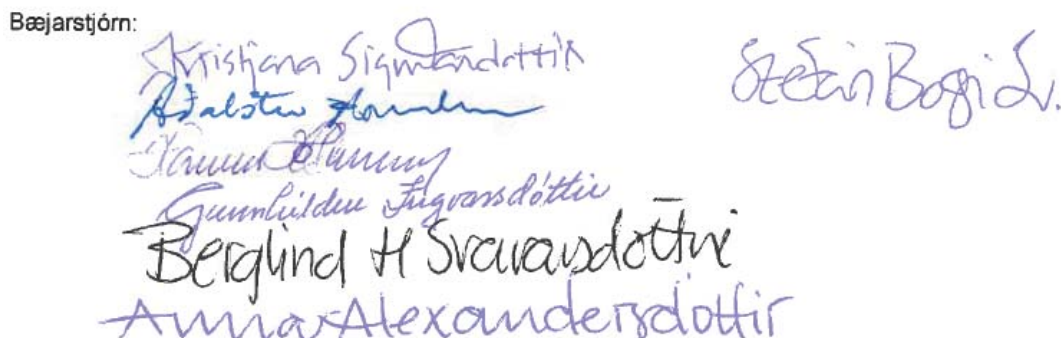 Bæjarstjórn:
Kristjana Sigurðardóttir
Stefán Bogi Sv.
Aðalsteinn
Gunnhildur Ingvarsdóttir
Berglind H Svavarsdóttir
Anna Alexandersdóttir